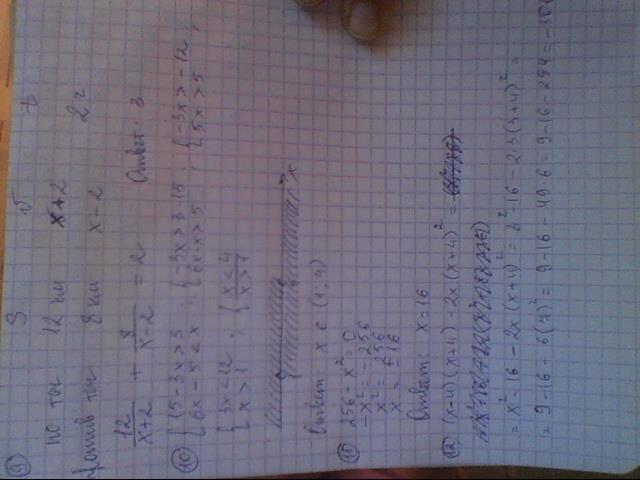 9
S v t
по теч 12 км x+2
против теч 8 км x-2 2ч
12/(x+2) + 8/(x-2) = 2 Ответ: 3
10 { 15-3x>3 ; 6x-5<x ; { -3x>3-15 ; 6x-x>5 ; { -3x>-12 ; 5x>5 ;
{ 3x<12 ; x>1 ; { x<4 ; x>1
x
Ответ x ∈ (1;4)
11 256-x²=0
-x²=-256
x²=256
x=±16
Ответ: x=16
12 (x-4)(x+4)-2x(x+4)² =
= x²-16-2x(x+4)² = 3²-16-2·3(3+4)² =
= 9-16-6(7)² = 9-16-49·6 = 9-16-294 =